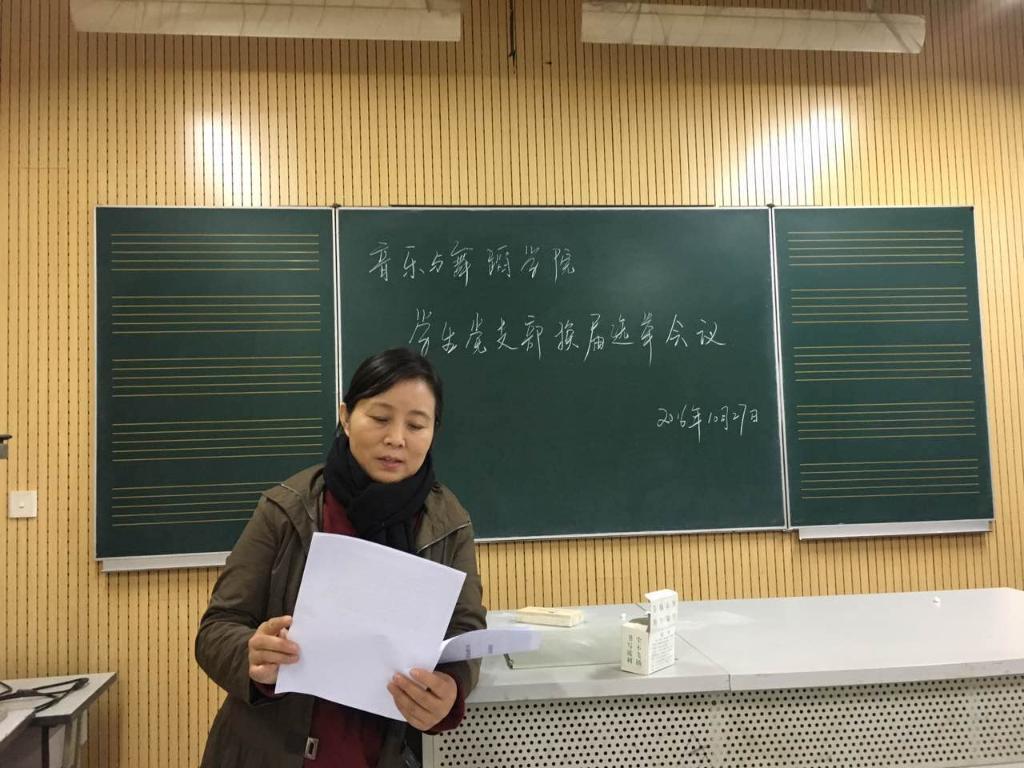 音乐与舞蹈学院
学生党支部换届选举会议
2016年10月27日